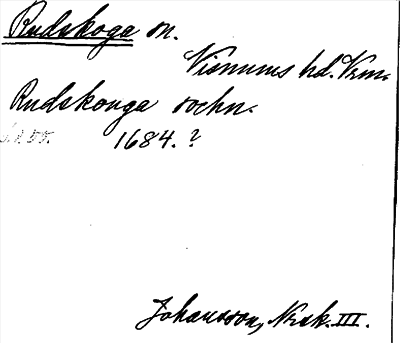 Rudskoga sn.
Visnums hd. Vrm.
Rudskouga sochn.
1684.?
Johansson, Nsk. III.